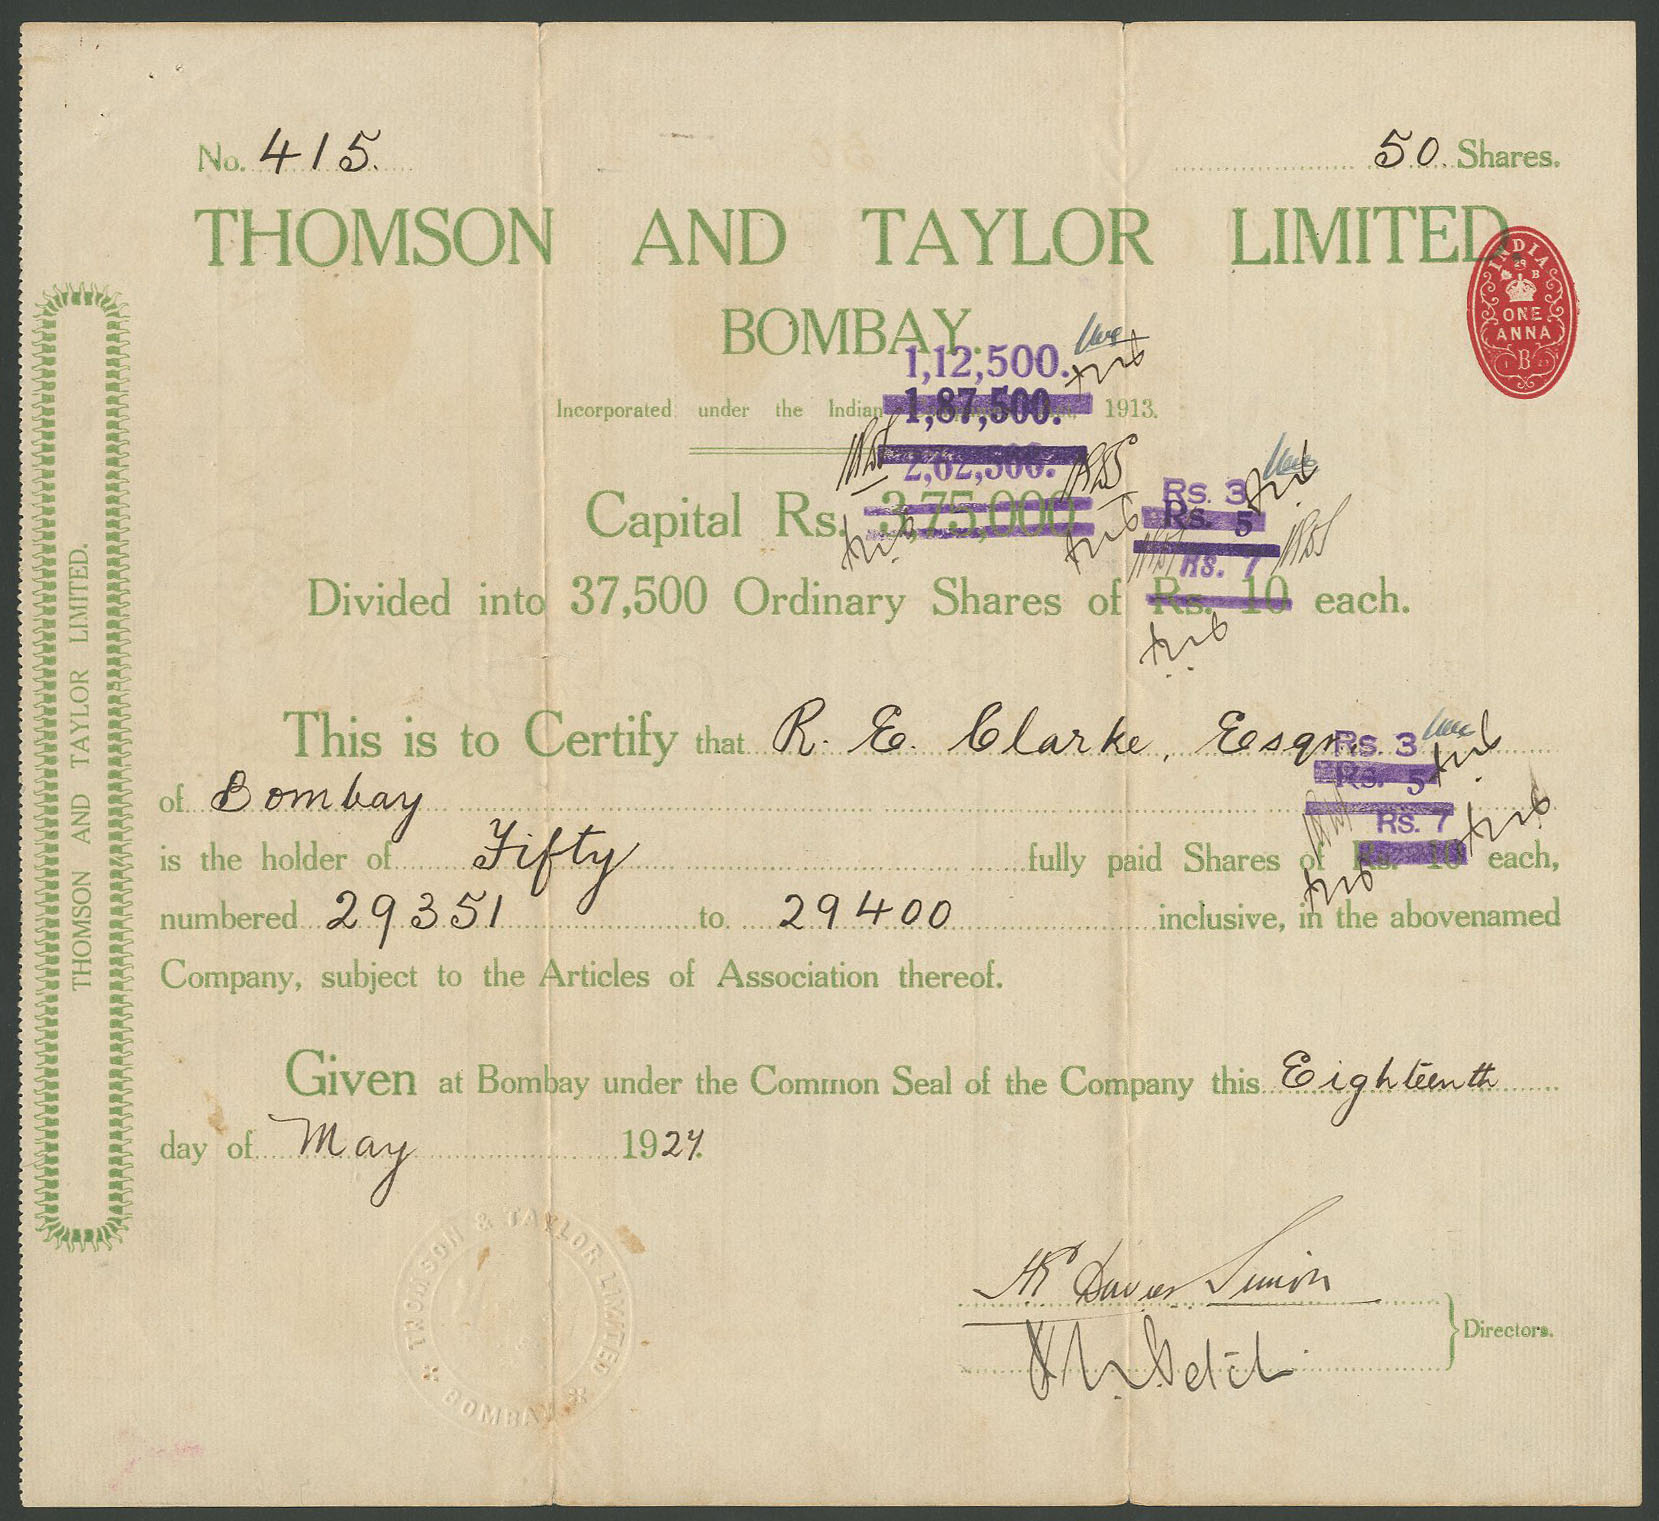 No. 415.
50 Shares.
THOMSON AND TAYLOR LIMITED.
INDIA
29
B
ONE
ANNA
B
BOMBAY.
1,12,500.
1,87,500.
Incorporated under the Indian 1913.
2,62,500.
Capital Rs. 3,75,000
Rs. 3
Rs. 5
Rs. 7
Divided into 37,500 Ordinary Shares of Rs. 10 each.
This is to Certify that R. E. Clarke, Esqre
Rs. 3
of Bombay
Rs. 5
Rs. 7
is the holder of Fifty fully paid Shares of Rs. 10 each,
numbered 29351 to 29400 inclusive, in the abovenamed
Company, subject to the Articles of Association thereof.
Given at Bombay under the Common Seal of the Company this Eighteenth
day of May 1927.
THOMSON & TAYLOR LIMITED
BOMBAY
Directors.
THOMSON AND TAYLOR LIMITED.